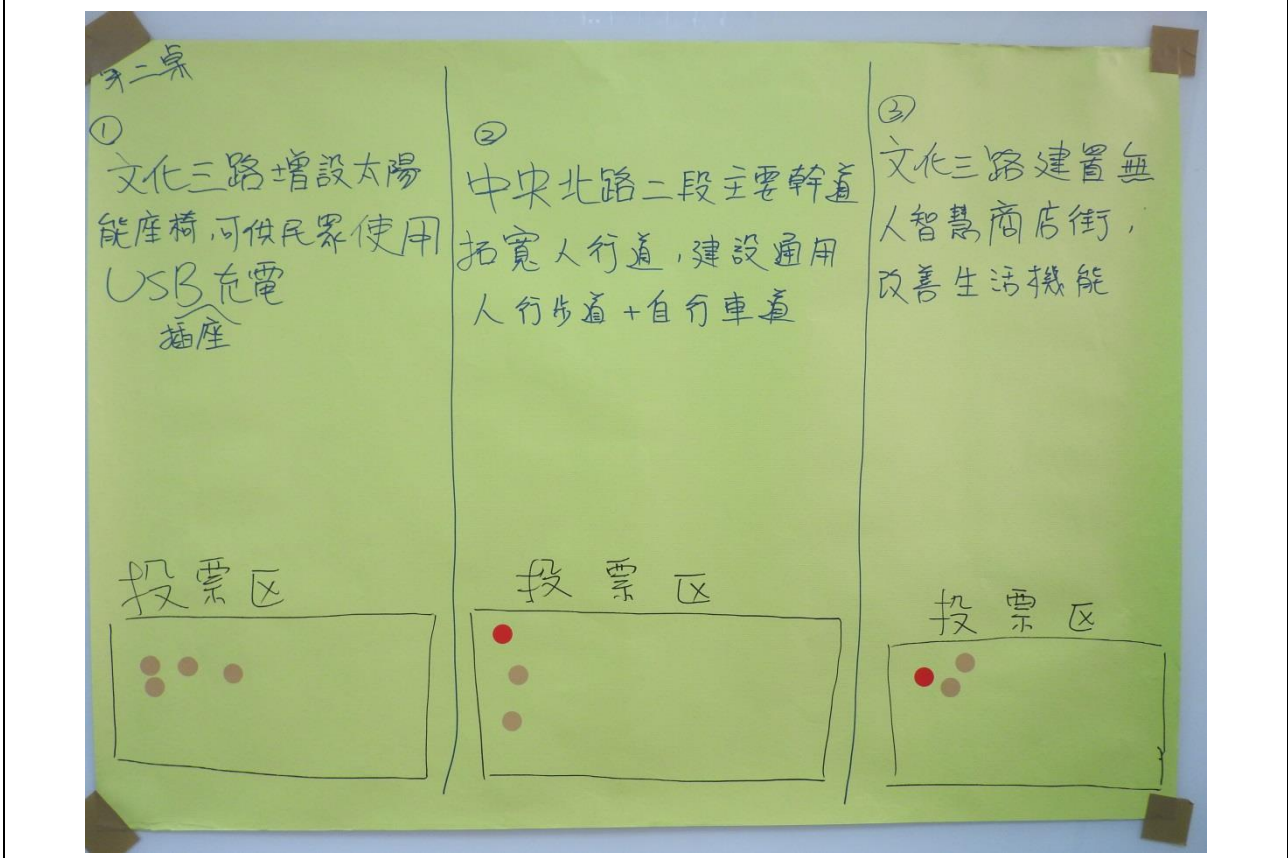 第二桌
①
文化三路增設太陽
能座椅,可供民眾使用
USB充電
插座
投票区
②
中央北路二段主要幹道
拓寬人行道,建設通用
人行步道+自行車道
投票区
③
文化三路建置無
人智慧商店街,
改善生活機能
投票区